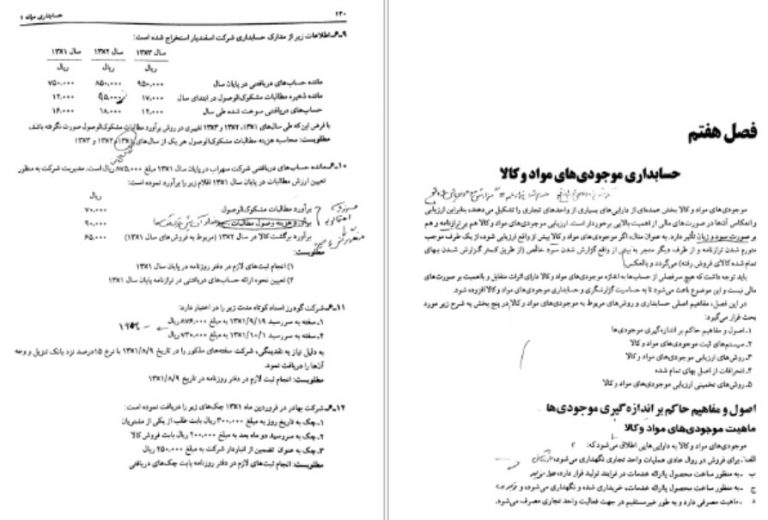 ۱۲۰ حسابداری میانه ۱
۹ـ۶ـ اطلاعات زیر از مدارک حسابداری شرکت اسفندیار استخراج شده است:
سال ۱۳۷۳ سال ۱۳۷۲ سال ۱۳۷۱
ریال ریال ریال
مانده حساب‌های دریافتنی در پایان سال ۹۵۰,۰۰۰ ۸۵۰,۰۰۰ ۷۵۰,۰۰۰
مانده ذخیره مطالبات مشکوک‌الوصول در ابتدای سال ۱۷,۰۰۰ ۱۵,۰۰۰ ۱۲,۰۰۰
حساب‌های دریافتنی سوخت شده طی سال ۱۲,۰۰۰ ۱۸,۰۰۰ ۱۶,۰۰۰
با فرض این‌که طی سال‌های ۱۳۷۱، ۱۳۷۲ و ۱۳۷۳ تغییری در روش برآورد مطالبات مشکوک‌الوصول صورت نگرفته باشد،
مطلوبست: محاسبه هزینه مطالبات مشکوک‌الوصول هر یک از سال‌های ۱۳۷۱، ۱۳۷۲ و ۱۳۷۳
۱۰ـ۶ـ مانده حساب‌های دریافتنی شرکت سهراب در پایان سال ۱۳۷۱ مبلغ ۸۷۵,۰۰۰ ریال است. مدیریت شرکت به منظور
تعیین ارزش مطالبات در پایان سال ۱۳۷۱ اقلام زیر را برآورد نموده است:
ریال
برآورد مطالبات مشکوک‌الوصول ۷۰,۰۰۰
برآورد هزینه وصول مطالبات ۹۰,۰۰۰
برآورد برگشت کالا در سال ۱۳۷۲ (مربوط به فروش‌های سال ۱۳۷۱) ۶۵,۰۰۰
۱) انجام ثبت‌های لازم در دفتر روزنامه در پایان سال ۱۳۷۱
۲) تعیین نحوه ارائه حساب‌های دریافتنی در ترازنامه پایان سال ۱۳۷۱
۱۱ـ۶ـ شرکت گودرز اسناد کوتاه مدت زیر را در اختیار دارد:
۱ـ سفته به سررسید ۱۳۷۱/۹/۱۹ به مبلغ ۸۷۶,۰۰۰ ریال
۲ـ سفته به سررسید ۱۳۷۱/۱۰/۱ به مبلغ ۷۳۰,۰۰۰ ریال
به دلیل نیاز به نقدینگی، شرکت سفته‌های مذکور را در تاریخ ۱۳۷۱/۸/۹ با نرخ ۱۵درصد نزد بانک تنزیل و وجه
آن‌ها را دریافت نمود.
مطلوبست: انجام ثبت لازم در دفتر روزنامه در تاریخ ۱۳۷۱/۸/۹
۱۲ـ۶ـ شرکت بهادر در فروردین ماه ۱۳۷۱ چک‌های زیر را دریافت نموده است:
۱ـ چک به تاریخ روز به مبلغ ۳۰۰,۰۰۰ ریال بابت طلب از یکی از مشتریان
۲ـ چک به سررسید دو ماه بعد به مبلغ ۲۰۰,۰۰۰ ریال بابت فروش کالا
۳ـ چک به عنوان تضمین از انباردار شرکت به مبلغ ۲۵۰,۰۰۰ ریال
مطلوبست: انجام ثبت‌های لازم در دفتر روزنامه بابت چک‌های دریافتی
فصل هفتم
حسابداری موجودی‌های مواد و کالا
موجودی‌های مواد و کالا بخش عمده‌ای از دارایی‌های بسیاری از واحدهای تجاری را تشکیل می‌دهند، بنابراین ارزیابی
و انعکاس آن‌ها در صورت‌های مالی از اهمیت بالایی برخوردار است. ارزیابی موجودی‌های مواد و کالا هم بر ترازنامه و هم
بر صورت سود و زیان تأثیر دارد. به عنوان مثال، اگر موجودی‌های مواد و کالا بیش از واقع ارزیابی شود، از یک طرف موجب
متورم شدن ترازنامه و از طرف دیگر منجر به بیش از واقع گزارش شدن سود خالص (از طریق کمتر گزارش شدن بهای
تمام شده کالای فروش رفته) می‌گردد و بالعکس
باید توجه داشت که هیچ سرفصلی از حساب‌ها به اندازه موجودی‌های مواد و کالا دارای اثرات متقابل و بااهمیت بر صورت‌های
مالی نیست و این موضوع باعث می‌شود تا به حساسیت گزارشگری و حسابداری موجودی‌های مواد و کالا افزوده شود.
در این فصل، مفاهیم اصلی حسابداری و روش‌های مربوط به موجودی‌های مواد و کالا در پنج بخش به شرح زیر مورد
بحث قرار می‌گیرد:
۱ـ اصول و مفاهیم حاکم بر اندازه‌گیری موجودی‌ها
۲ـ سیستم‌های ثبت موجودی‌های مواد و کالا
۳ـ روش‌های ارزیابی موجودی‌های مواد و کالا
۴ـ انحرافات از اصل بهای تمام شده
۵ـ روش‌های تخمینی ارزیابی موجودی‌های مواد و کالا
اصول و مفاهیم حاکم بر اندازه‌گیری موجودی‌ها
ماهیت موجودی‌های مواد و کالا
موجودی‌های مواد و کالا به دارایی‌هایی اطلاق می‌شود که:
الف ـ برای فروش در روال عادی عملیات واحد تجاری نگهداری می‌شود،
ب ـ به منظور ساخت محصول یا ارائه خدمات در فرایند تولید قرار دارد،
ج ـ به منظور ساخت محصول یا ارائه خدمات، خریداری شده و نگهداری می‌شود، و
د ـ ماهیت مصرفی دارد و به طور غیرمستقیم در جهت فعالیت واحد تجاری مصرف می‌شود.